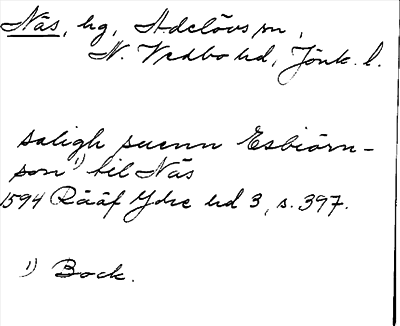 Näs, hg, Adelövs sn,
N. Vedbo hd, Jönk. l.
saligh suenn Esbiörn-
son¹⁾ til Näs
1594 Rääf Ydre hd 3, s. 397.
¹⁾ Bock.